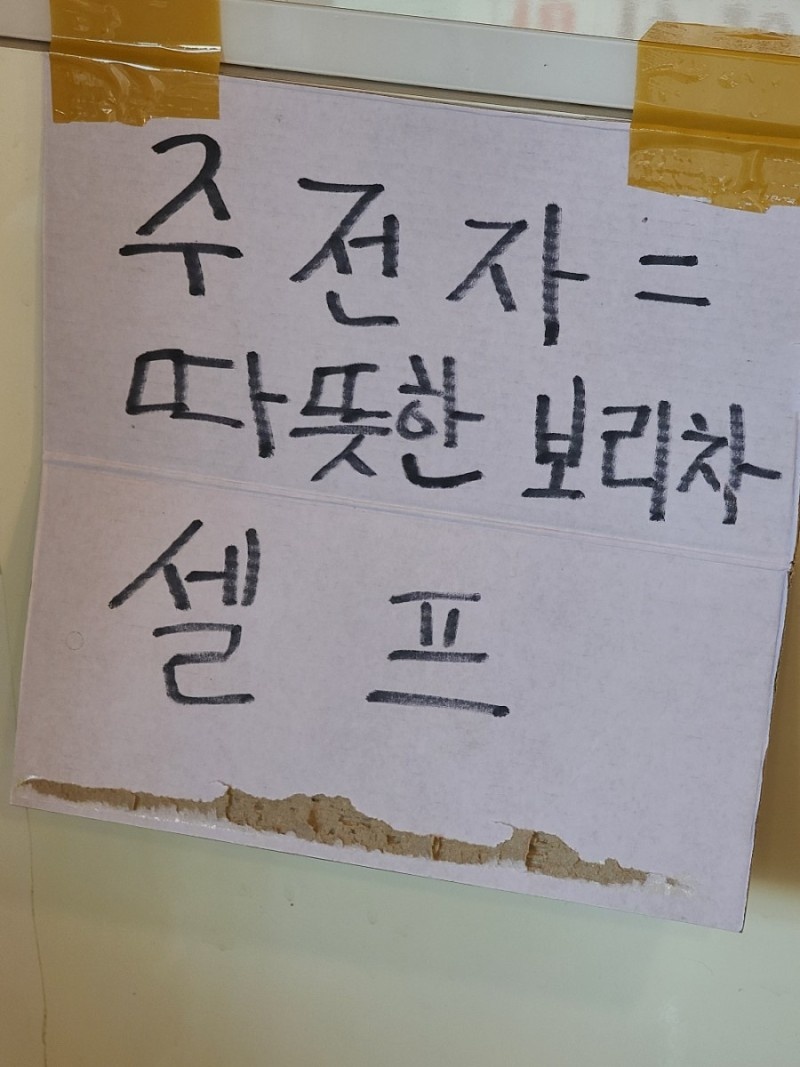 주전자 =
따뜻한 보리차
셀프